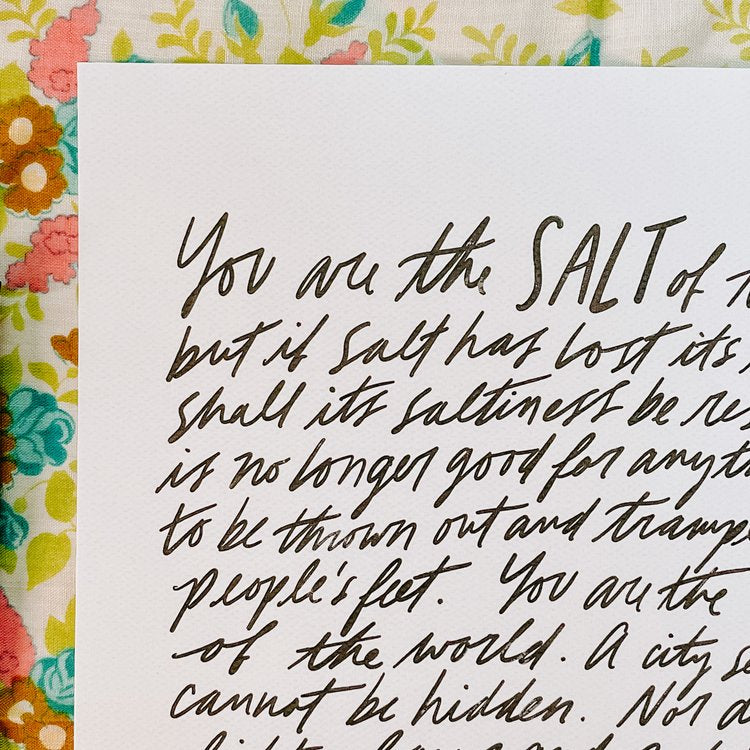 You are the SALT of
but if salt has lost its
shall its saltiness be res
is no longer good for anyt
to be thrown out and trampl
people's feet. You are the
of the world. A city se
cannot be hidden. Nor d